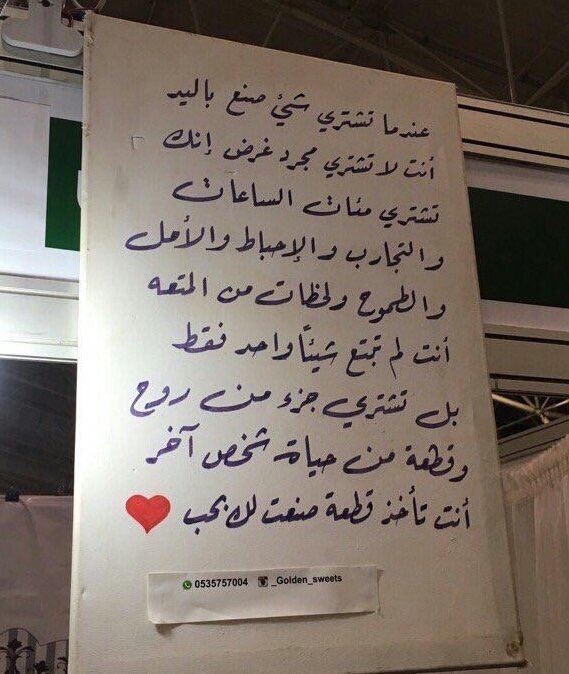 عندما تشتري شيئ صنع باليد
أنت لا تشتري مجرد غرض إنك
تشتري مئات الساعات
والتجارب والإحباط والأمل
والطموح ولحظات من المتعه
أنت لم تبتع شيئاً واحد فقط
بل تشتري جزء من روح
وقطعة من حياة شخص آخر
أنت تأخذ قطعة صنعت لك بحب
0535757004 _Golden_sweets